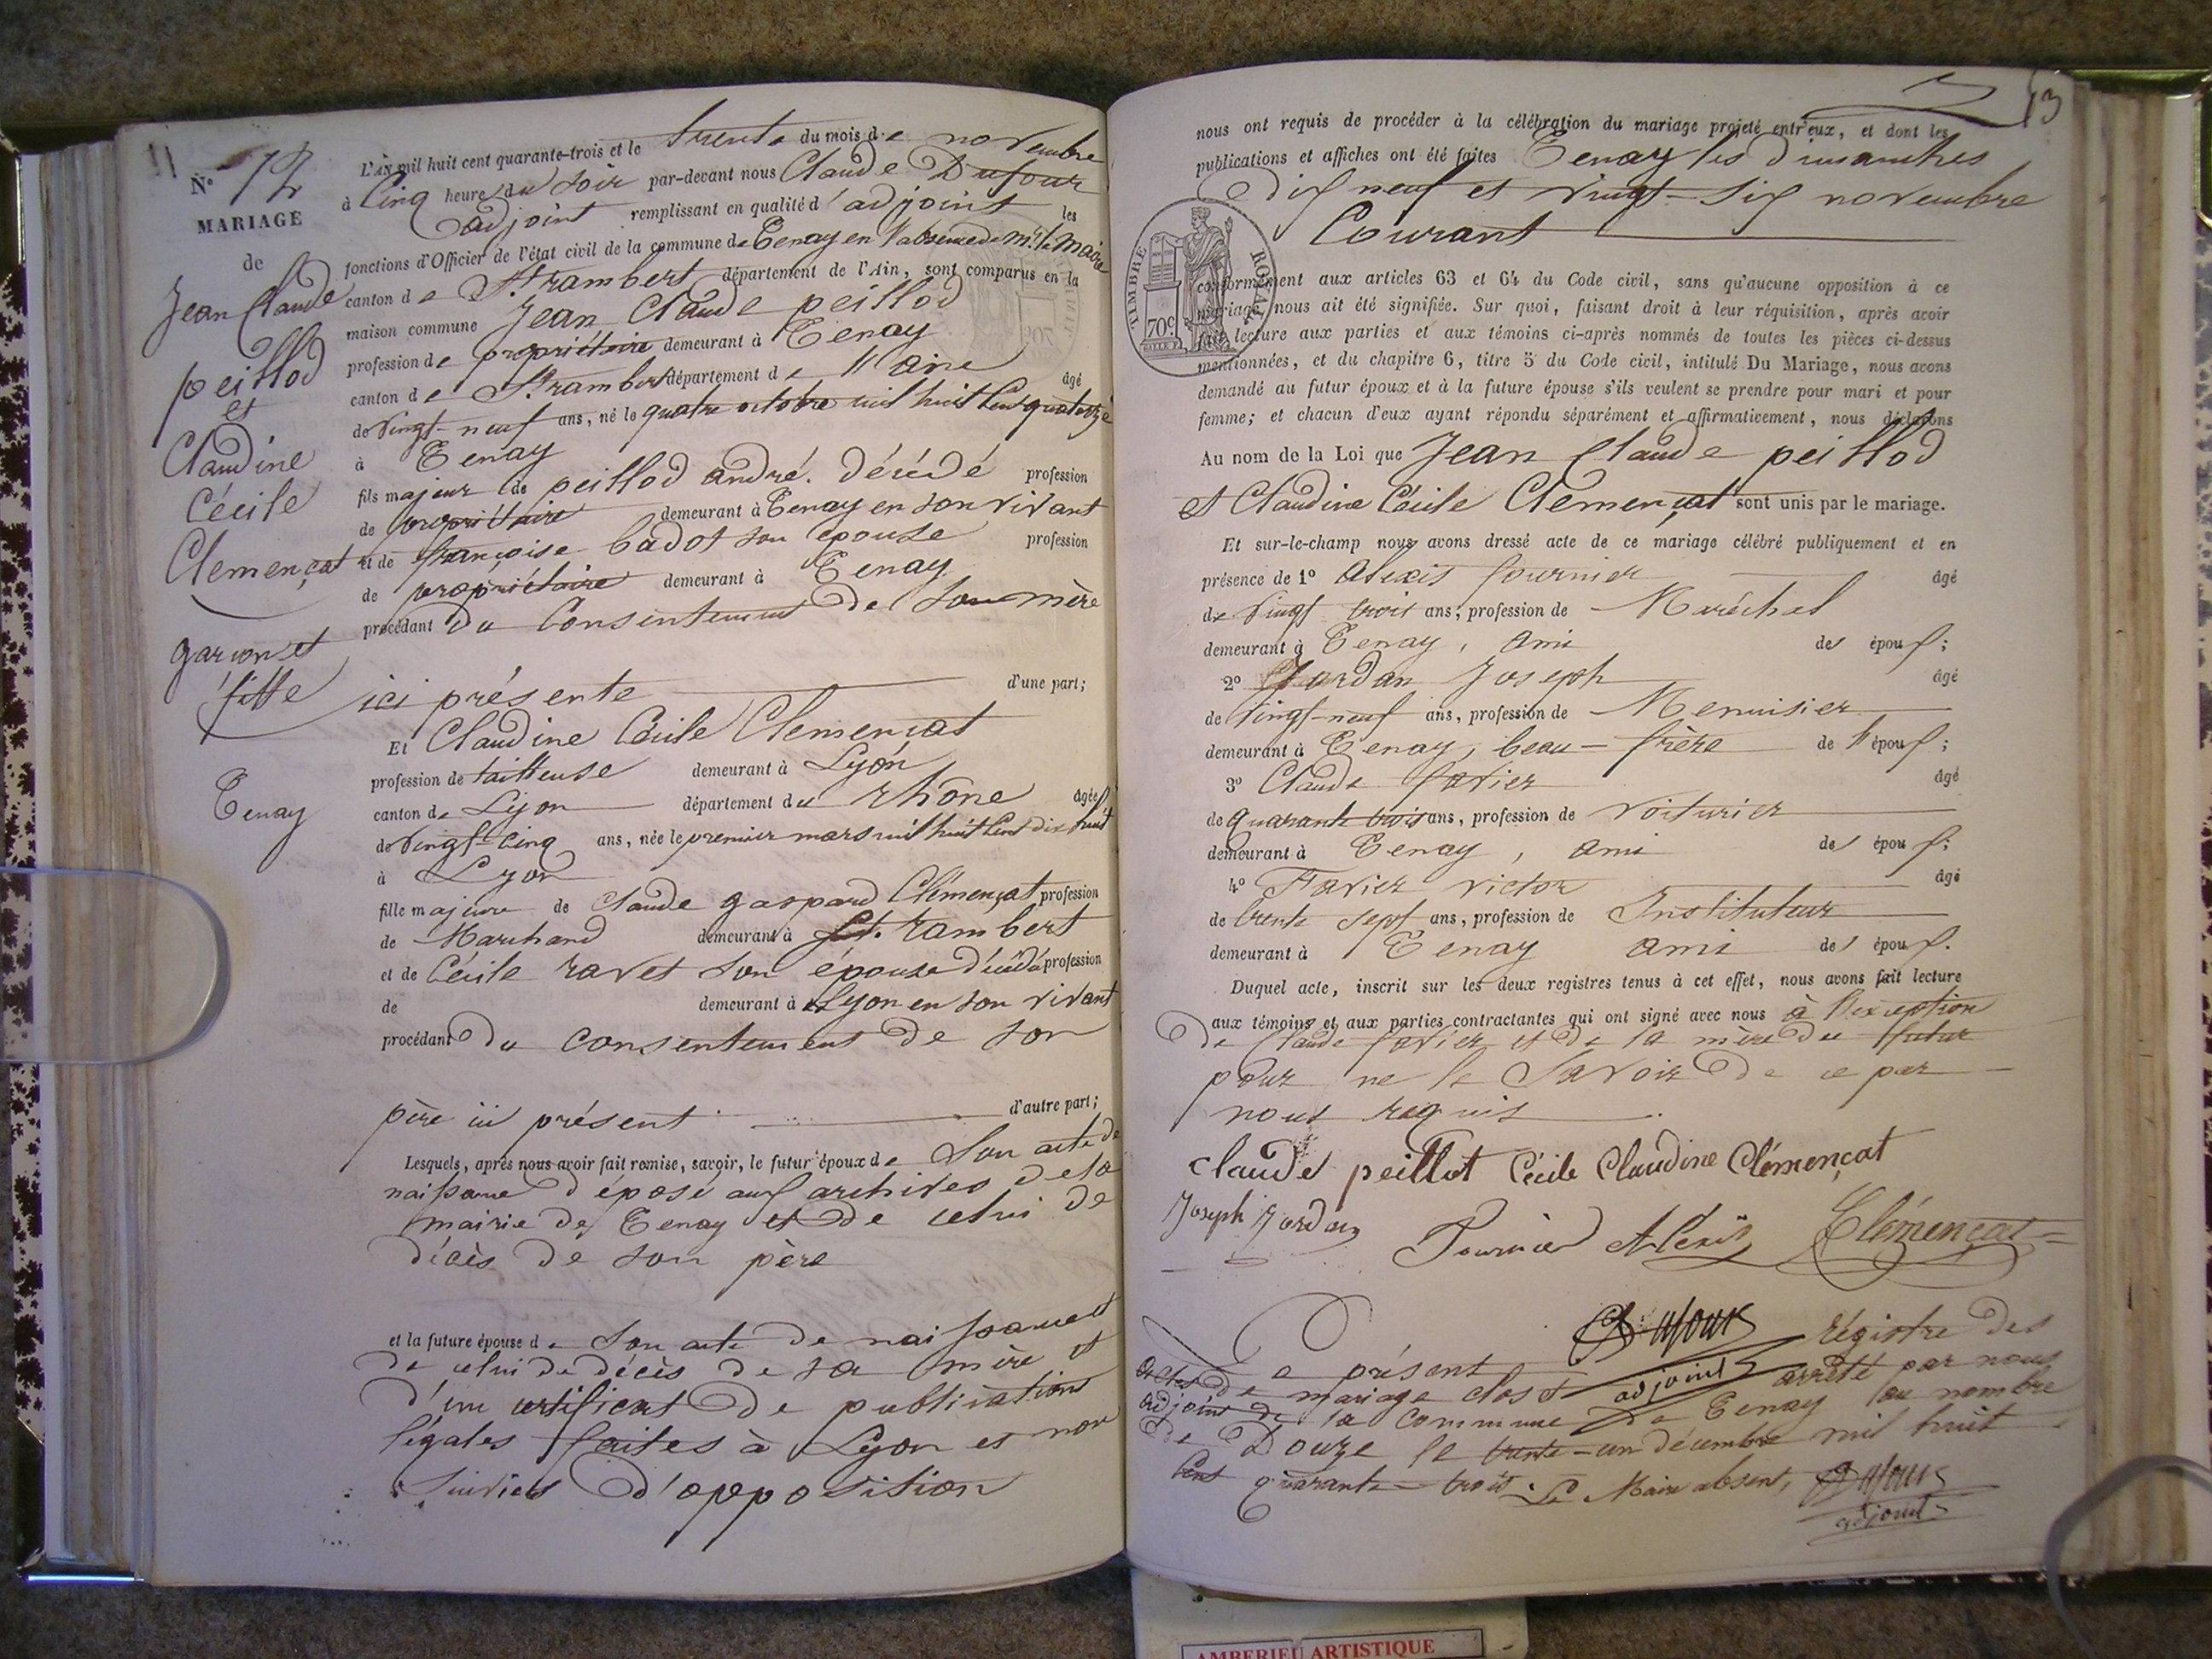 11
N° 12
MARIAGE
de
Jean Claude
peillod
et
Claudine
Cécile
Clemençat
garçon et
fille
Tenay
L'AN mil huit cent quarante-trois et le trente du mois de novembre
à Cinq heure du soir par-devant nous Claude Dufour
adjoint remplissant en qualité d'adjoint les
fonctions d'Officier de l'état civil de la commune de Tenay en l'absence de mr. le Maire
canton de St. rambert département de l'Ain, sont comparus en la
maison commune Jean Claude peillod
profession de propriétaire demeurant à Tenay
canton de St. rambert département de l'ain âgé
de vingt-neuf ans, né le quatre octobre mil huit cent quatorze
à Tenay
fils majeur de peillod andré. décédé profession
de propriétaire demeurant à Tenay en son vivant
et de françoise badot son épouse profession
de propriétaire demeurant à Tenay
procédant du Consentement de sa mère
ici présente d'une part;
Et Claudine Cécile Clemençat
profession de tailleuse demeurant à Lyon
canton de Lyon département du rhône âgée
de vingt-cinq ans, née le premier mars mil huit cent dix huit
à Lyon
fille majeure de Claude gaspard Clémençat profession
de Marchand demeurant à St. rambert
et de Cécile ravet son épouse décédée profession
de demeurant à Lyon en son vivant
procédant du consentement de son
père ici présent d'autre part;
Lesquels, après nous avoir fait remise, savoir, le futur époux de Son acte de
naissance déposé aux archives de la
mairie de Tenay et de celui de
décès de son père
et la future épouse de Son acte de naissance et
de celui de décès de sa mère et
d'un certificat de publications
légales faites à Lyon et non
suivies d'opposition
13
nous ont requis de procéder à la célébration du mariage projeté entr'eux, et dont les
publications et affiches ont été faites Tenay les dimanches
dix neuf et vingt-six novembre
Courant
TIMBRE ROYAL
70c
conformément aux articles 63 et 64 du Code civil, sans qu'aucune opposition à ce
mariage nous ait été signifiée. Sur quoi, faisant droit à leur réquisition, après avoir
fait lecture aux parties et aux témoins ci-après nommés de toutes les pièces ci-dessus
mentionnées, et du chapitre 6, titre 5 du Code civil, intitulé Du Mariage, nous avons
demandé au futur époux et à la future épouse s'ils veulent se prendre pour mari et pour
femme; et chacun d'eux ayant répondu séparément et affirmativement, nous déclarons
Au nom de la Loi que Jean Claude peillod
et Claudine Cécile Clemençat sont unis par le mariage.
Et sur-le-champ nous avons dressé acte de ce mariage célébré publiquement et en
présence de 1° alexis fournier âgé
de vingt trois ans, profession de Maréchal
demeurant à Tenay, ami des époux;
2° Jordan Joseph âgé
de vingt-neuf ans, profession de Menuisier
demeurant à Tenay, beau-frère de l'époux;
3° Claude favier âgé
de quarante trois ans, profession de voiturier
demeurant à Tenay, ami des époux;
4° Favier victor âgé
de trente sept ans, profession de Instituteur
demeurant à Tenay ami des époux.
Duquel acte, inscrit sur les deux registres tenus à cet effet, nous avons fait lecture
aux témoins et aux parties contractantes qui ont signé avec nous à l'exception
de Claude favier et de la mère du futur
pour ne le Savoir de ce par
nous requis
claude peillot Cécile Claudine Clémençat
Joseph Jordan Fournier Alexis Clémençat
Dufour
adjoint
Le présent régistre des
actes de mariage clos et arrêté par nous
adjoint de la commune de Tenay au nombre
de Douze le trente-un décembre mil huit
cent quarante-trois. Le Maire absent, Dufour
adjoint
AMBERIEU ARTISTIQUE